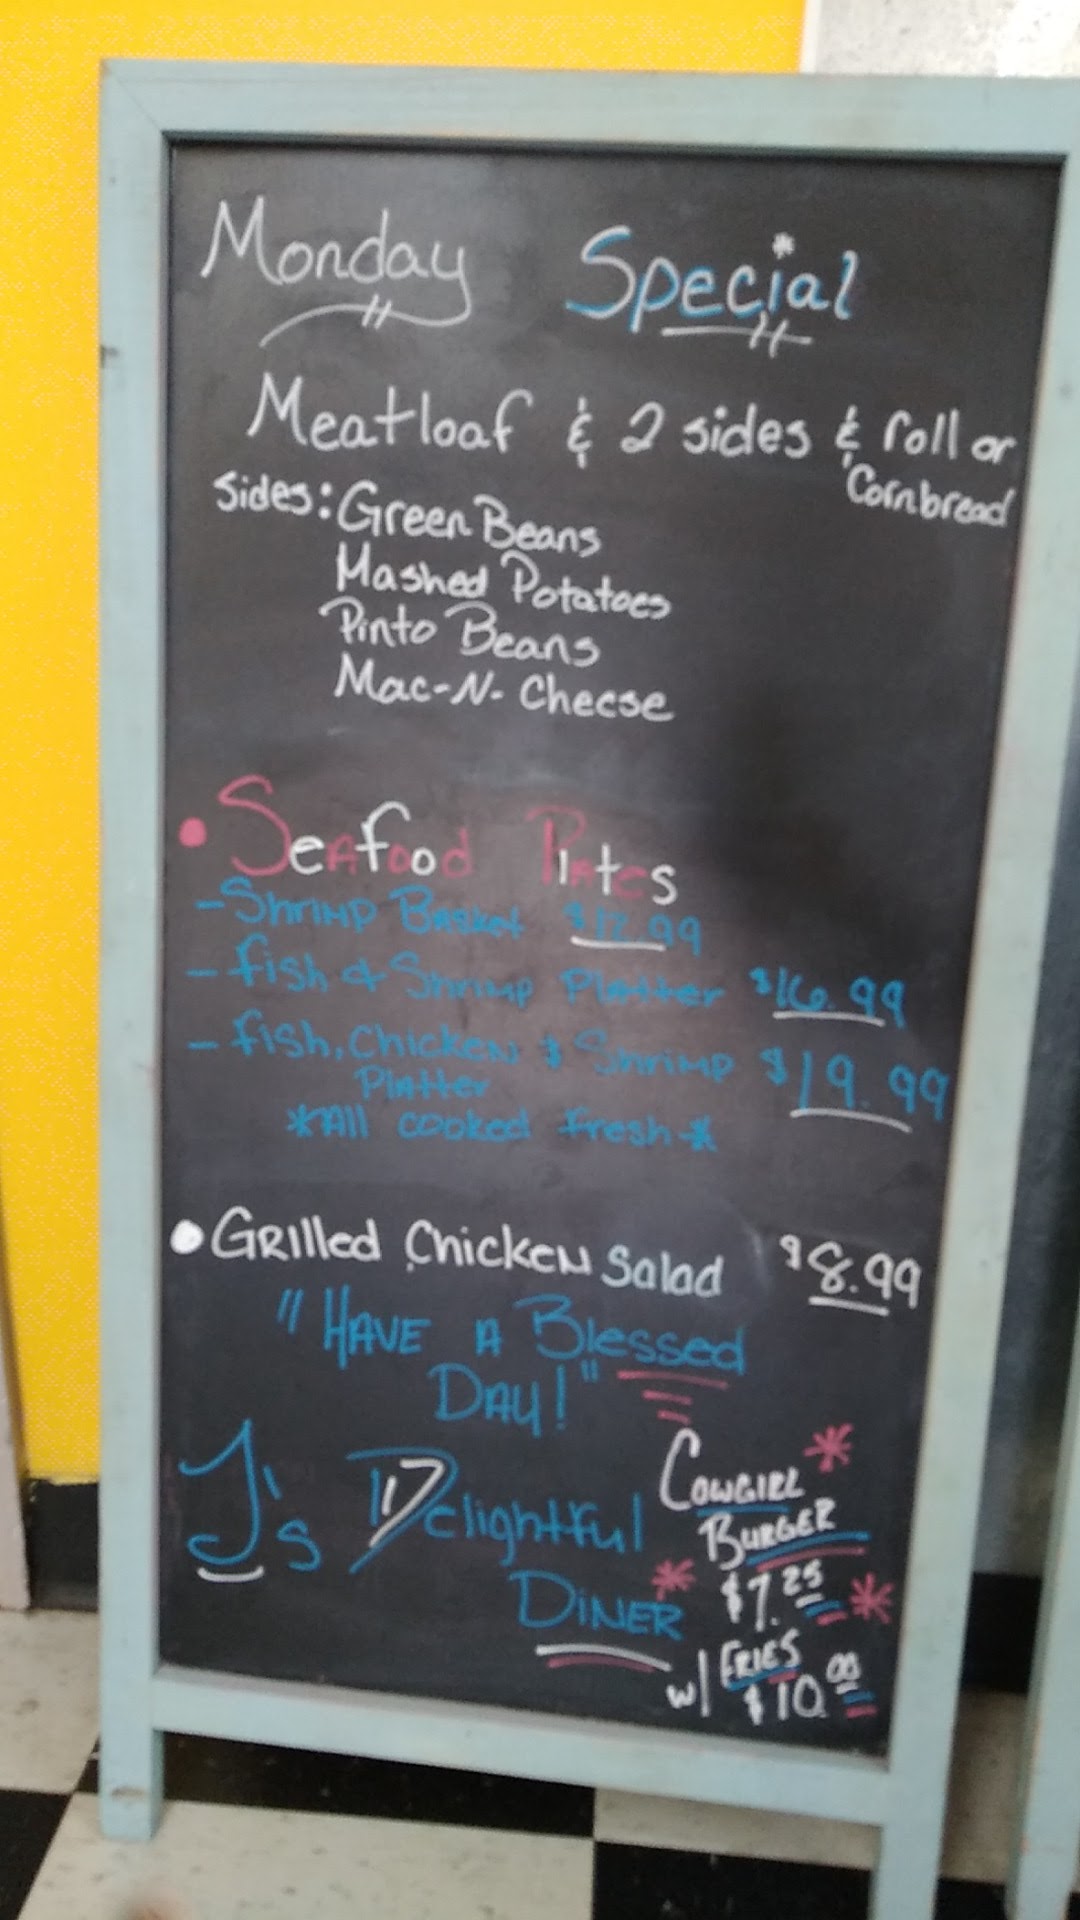 Monday Special
Meatloaf & 2 sides & roll or
Cornbread
Sides: Green Beans
Mashed Potatoes
Pinto Beans
Mac-N-Cheese
• Seafood Plates
- Shrimp Basket $12.99
- Fish & Shrimp Platter $16.99
- Fish, Chicken & Shrimp $19.99
Platter
*All cooked fresh*
• Grilled Chicken Salad $8.99
"HAVE A Blessed
DAY!"
J's Delightful
DINER
COWGIRL
BURGER
$7.25
w/ FRIES
$10.00